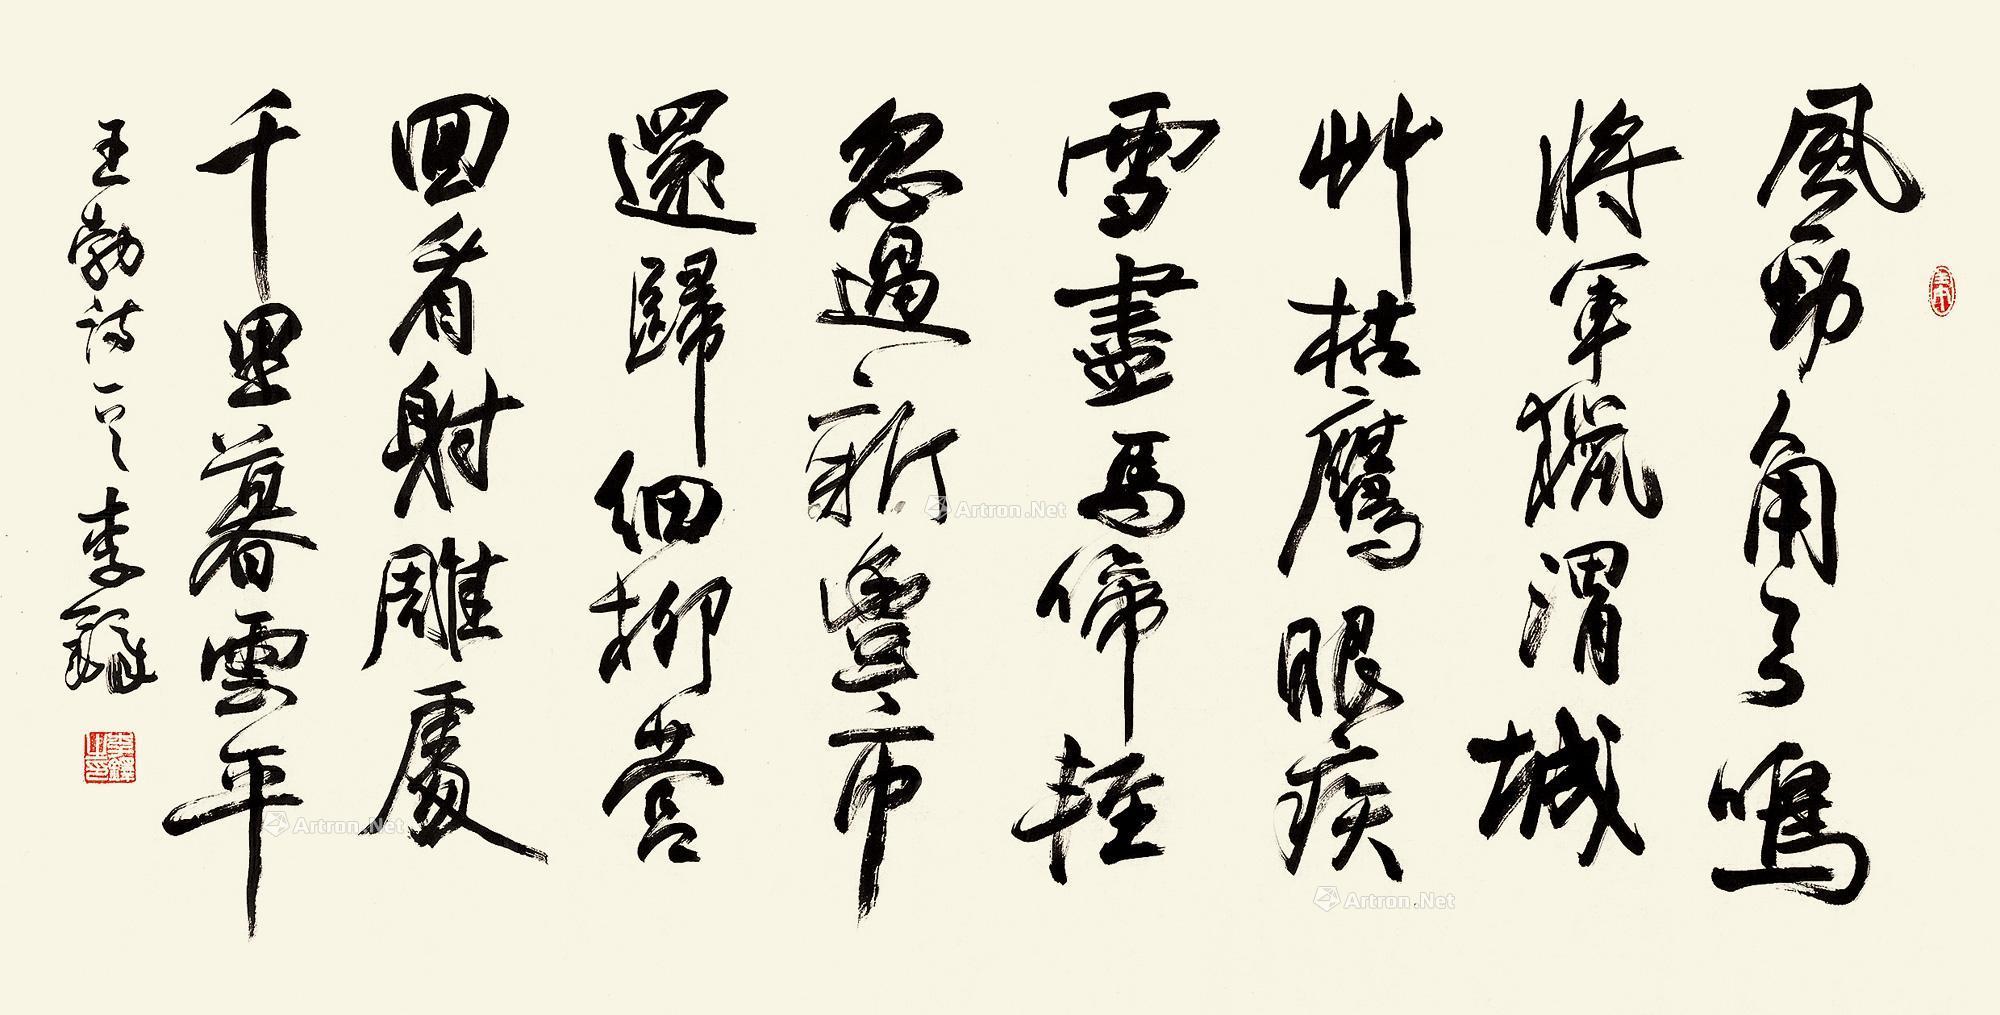 風勁角弓鳴
將軍獵渭城
艸枯鷹眼疾
雪盡馬蹄輕
忽過新豐市
還歸細柳營
回看射雕處
千里暮雲平
王勃诗一首 李鐸
李鐸之印
Artron.Net
Artron.Net
Artron.Net